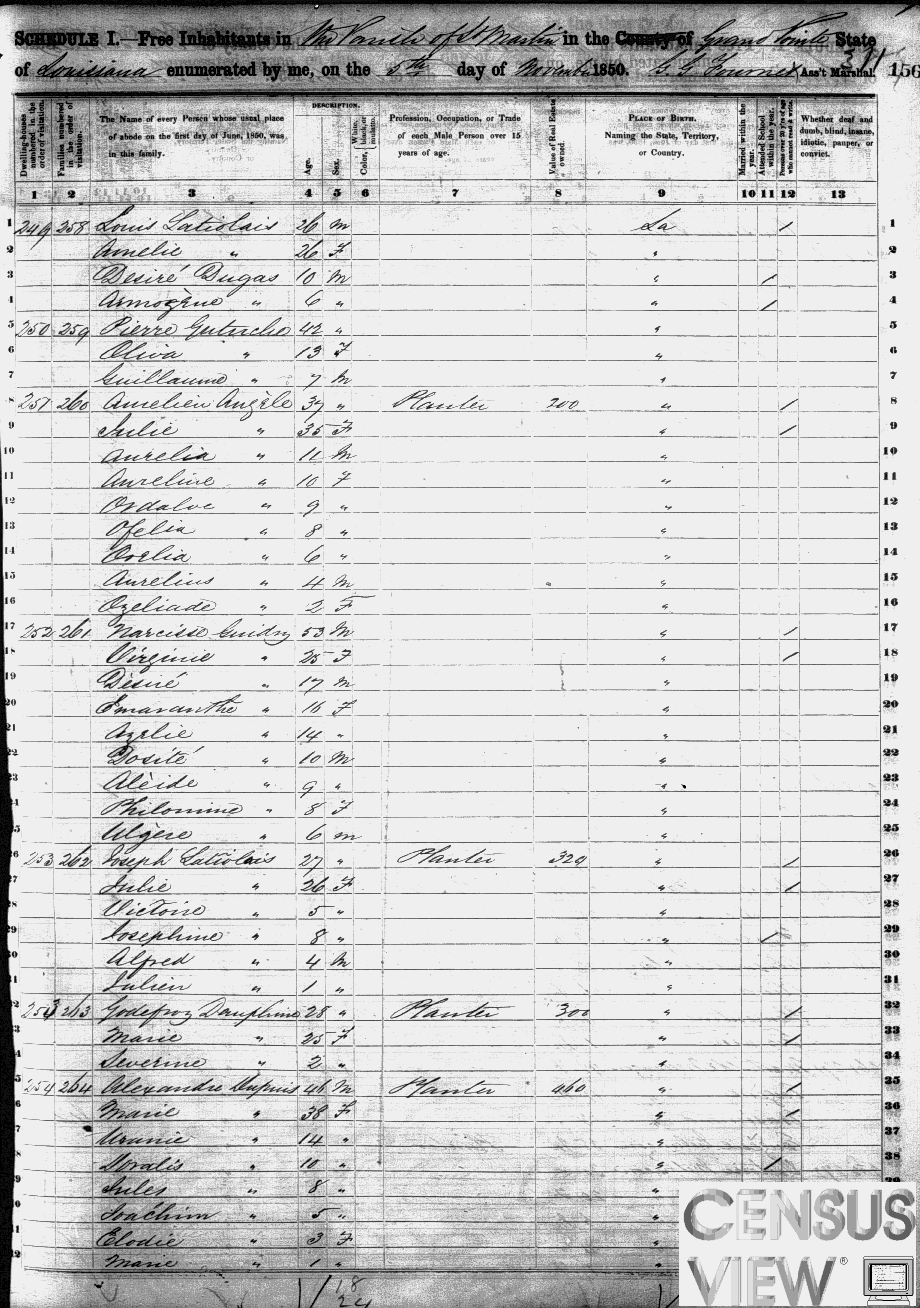 SCHEDULE I.—Free Inhabitants in The Parish of St Martin in the County of Grand Pointe State
of Louisiana enumerated by me, on the 5th day of November 1850. Fournet Ass't Marshal. 311 156
Dwelling-houses numbered in the order of visitation.
Families numbered in the order of visitation.
The Name of every Person whose usual place of abode on the first day of June, 1850, was in this family.
DESCRIPTION.
Age.
Sex.
Color, White, black, or mulatto.
Profession, Occupation, or Trade of each Male Person over 15 years of age.
Value of Real Estate owned.
PLACE OF BIRTH. Naming the State, Territory, or Country.
Married within the year.
Attended School within the year.
Persons over 20 y'rs of age who cannot read & write.
Whether deaf and dumb, blind, insane, idiotic, pauper, or convict.
1 2 3 4 5 6 7 8 9 10 11 12 13
1 249 258 Louis Latiolais 26 M La / 1
2 Amelie " 26 F " 2
3 Desiré Dugas 10 M " / 3
4 " 6 " " / 4
5 250 259 Pierre 42 " " 5
6 Oliva " 13 F " 6
7 Guillaume " 7 M " 7
8 251 260 Aurelien Angèle 37 " Planter 200 " / 8
9 Julie " 35 F " / 9
10 Aurelia " 11 M " 10
11 Aureline " 10 F " 11
12 " 9 " " 12
13 Ofelia " 8 " " 13
14 " 6 " " 14
15 Aurelius " 4 M " 15
16 Ozeliade " 2 F " 16
17 252 261 Narcisse Guidry 53 M " / 17
18 Virginie " 25 F " / 18
19 Désiré " 17 M " 19
20 Emaranthe " 16 F " 20
21 Azélie " 14 " " 21
22 Dosité " 10 M " 22
23 Alèide " 9 " " 23
24 Philomine " 8 F " 24
25 Ulgère " 6 M " 25
26 253 262 Joseph Latiolais 27 " Planter 320 " / 26
27 Julie " 26 F " / 27
28 Victoire " 5 " " 28
29 Josephine " 8 " " / 29
30 Alfred " 4 M " 30
31 Julien " 1 " " 31
32 263 Godefroy Dauphine 28 " Planter 300 " / 32
33 Marie " 25 F " / 33
34 Severine " 2 " " 34
35 254 264 Alexandre Dupuis 46 M Planter 460 " / 35
36 Marie " 38 F " / 36
37 Uranie " 14 " " 37
38 Doralis " 10 " " / 38
Jules " 8 " "
Joachim " 5 " "
Elodie " 3 F "
Marie " 1 " "
18
24
CENSUS
VIEW®